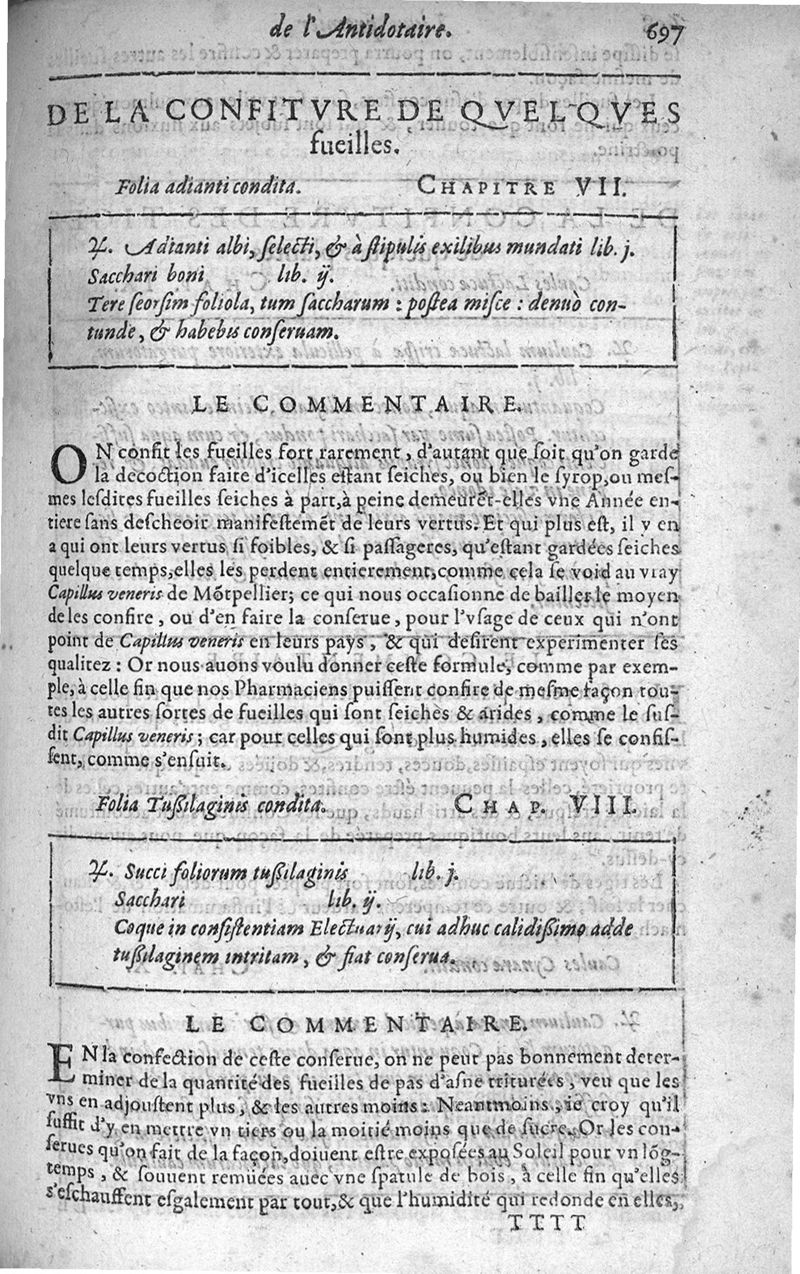 de l'Antidotaire. 697
DE LA CONFITVRE DE QVELQVES
fueilles.
Folia adianti condita. CHAPITRE VII.
♃. Adianti albi, ſelecti, & à ſtipulis exilibus mundati lib. j.
Sacchari boni lib. ij.
Tere ſeorſim foliola, tum ſaccharum : poſtea miſce : denuò con-
tunde, & habebis conſeruam.
LE COMMENTAIRE.
ON confit les fueilles fort rarement, d'autant que ſoit qu'on garde
la decoction faite d'icelles eſtant ſeiches, ou bien le ſyrop, ou meſ-
mes leſdites fueilles ſeiches à part, à peine demeurēt-elles vne Année en-
tiere ſans deſcheoir manifeſtemēt de leurs vertus. Et qui plus eſt, il y en
a qui ont leurs vertus ſi foibles, & ſi paſſageres, qu'eſtant gardées ſeiches
quelque temps, elles les perdent entierement, comme cela ſe void au vray
Capillus veneris de Mōtpellier; ce qui nous occaſionne de bailler le moyen
de les confire, ou d'en faire la conſerue, pour l'vſage de ceux qui n'ont
point de Capillus veneris en leurs pays, & qui deſirent experimenter ſes
qualitez : Or nous auons voulu donner ceſte formule, comme par exem-
ple, à celle fin que nos Pharmaciens puiſſent confire de meſme façon tou-
tes les autres ſortes de fueilles qui ſont ſeiches & arides, comme le ſuſ-
dit Capillus veneris; car pour celles qui ſont plus humides, elles ſe confiſ-
ſent, comme s'enſuit.
Folia Tußilaginis condita. CHAP. VIII.
♃. Succi foliorum tußilaginis lib. j.
Sacchari lib. ij.
Coque in conſiſtentiam Electuarij, cui adhuc calidißimo adde
tußilaginem intritam, & fiat conſerua.
LE COMMENTAIRE.
EN la confection de ceſte conſerue, on ne peut pas bonnement deter-
miner de la quantité des fueilles de pas d'aſne triturées, veu que les
vns en adjouſtent plus, & les autres moins : Neantmoins, ie croy qu'il
ſuffit d'y en mettre vn tiers ou la moitié moins que de ſucre. Or les con-
ſerues qu'on fait de la façon, doiuent eſtre expoſées au Soleil pour vn lōg-
temps, & ſouuent remüées auec vne ſpatule de bois, à celle fin qu'elles
s'eſchauffent eſgalement par tout, & que l'humidité qui redonde en elles,
TTTT